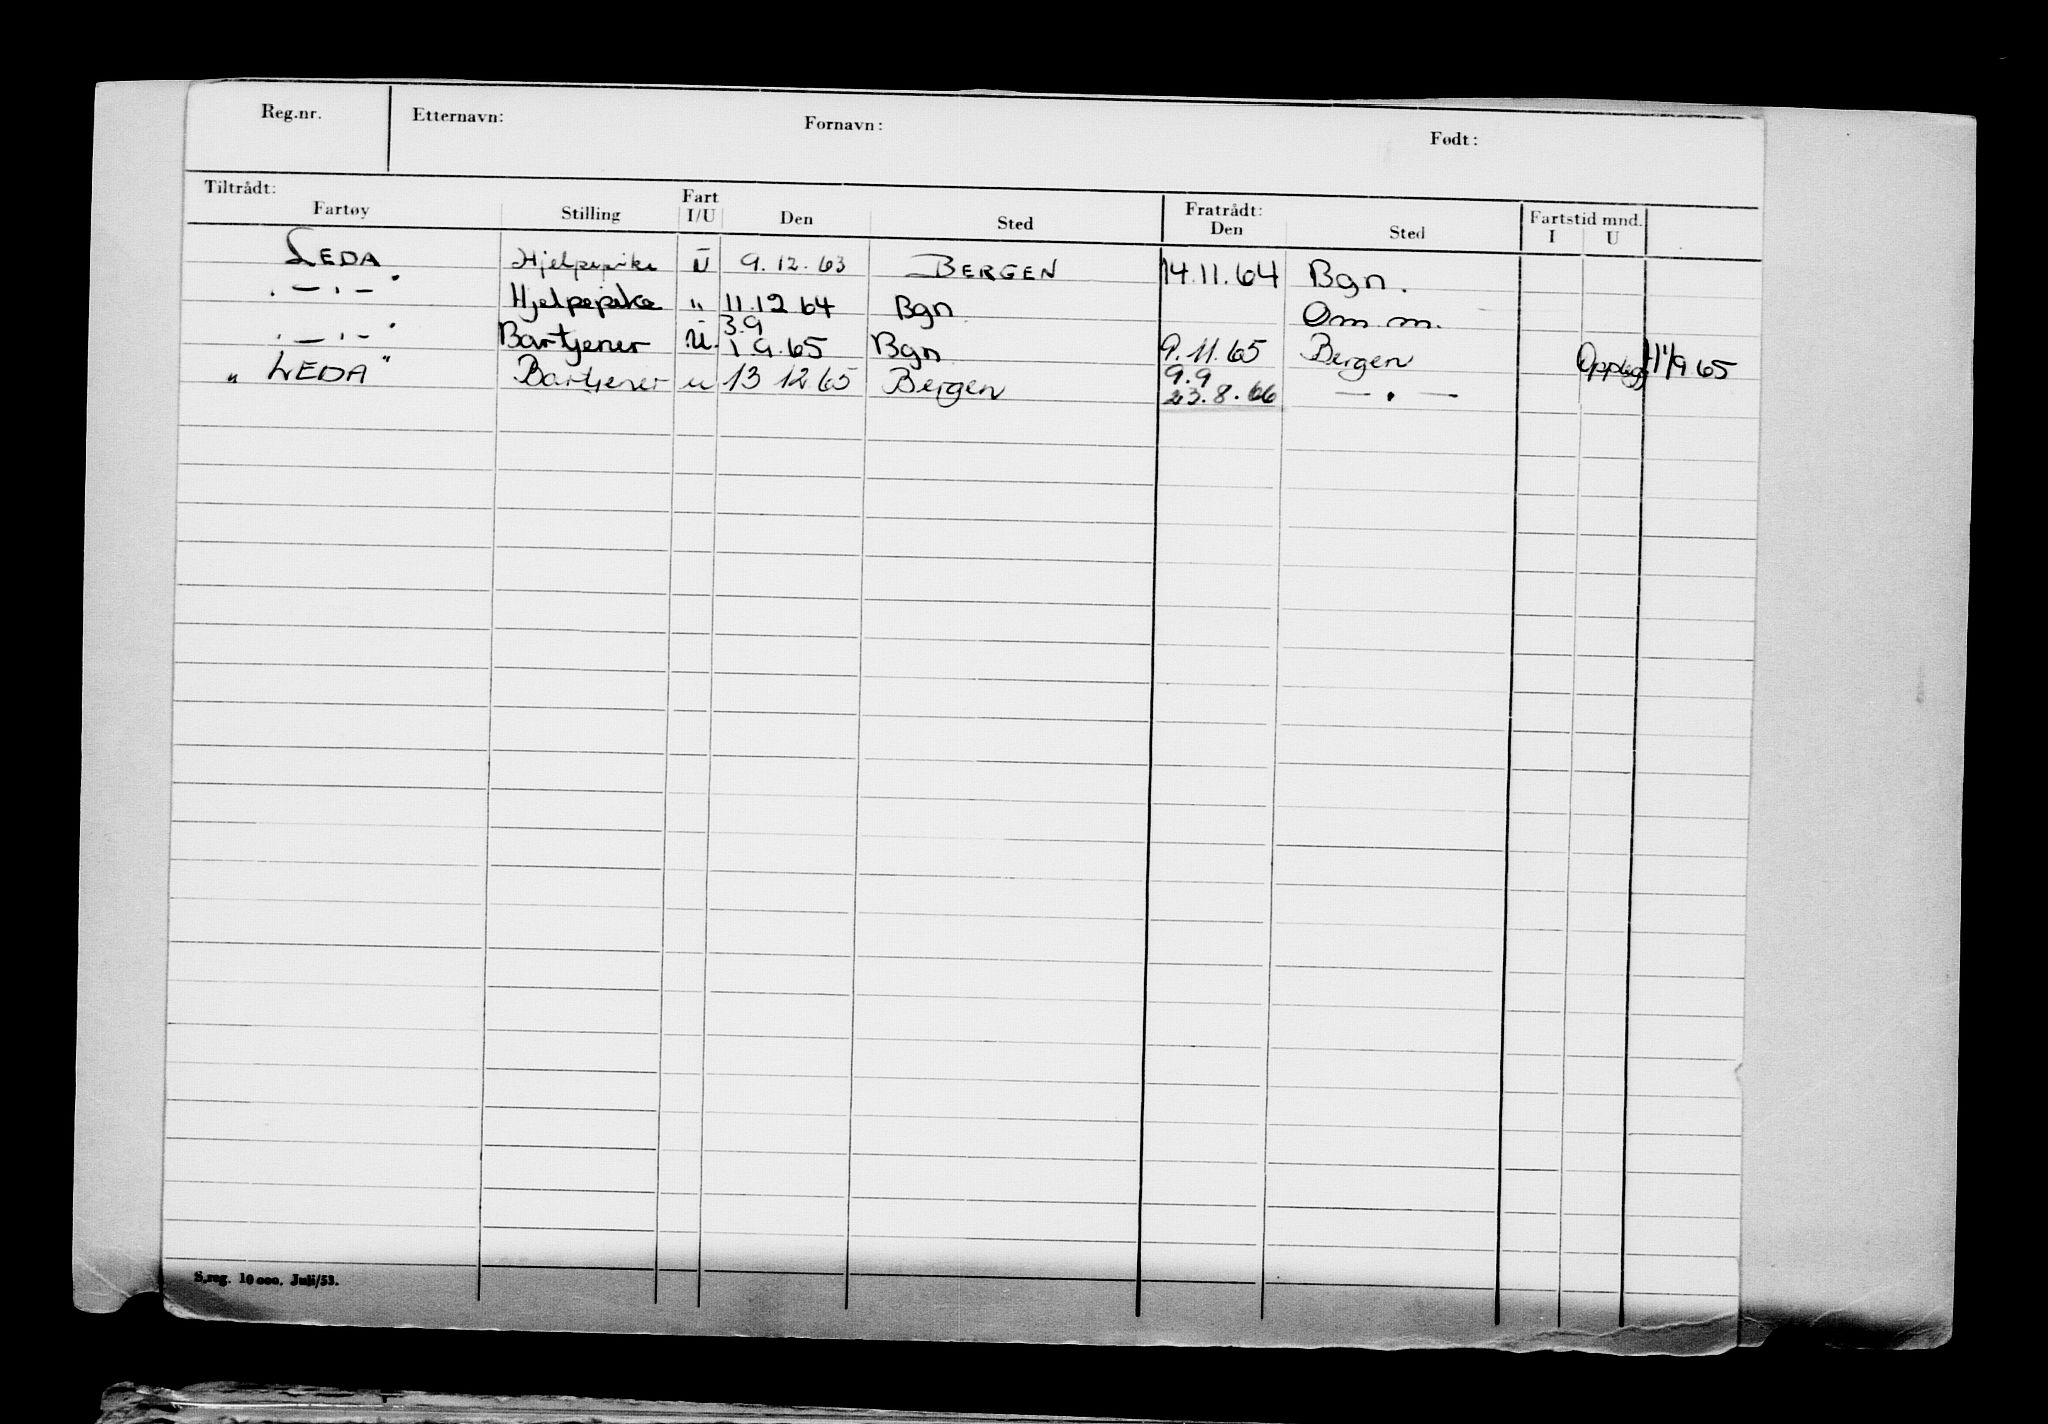 Reg.nr. Etternavn: Fornavn: Født:
Tiltrådt: Fratrådt:
Fartøy Stilling Fart I/U Den Sted Den Sted Fartstid mnd. I U
LEDA Hjelpepike U 9.12.63 BERGEN 14.11.64 Bgn.
" — " — " Hjelpepike " 11.12 64 Bgn Om.m.
3.9
" — " — " Bartjener U. 1 9.65 Bgn 9.11.65 Bergen 11/9 65
9.9
" LEDA " Bartjener u 13 12 65 Bergen 23.8.66 — " —
S.reg. 10 000. Juli/53.